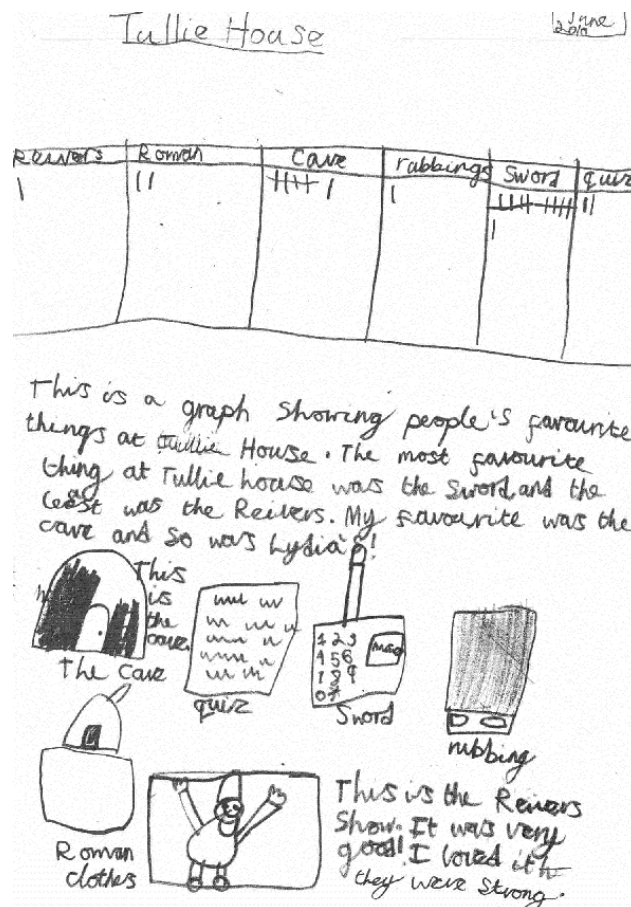 Tullie House
June
2010
Reivers Roman Cave rabbings Sword quiz
This is a graph showing people's favourite
things at Tullie House. The most favourite
thing at Tullie house was the Sword and the
least was the Reivers. My favourite was the
cave and so was Lydia's!
This
is
the
cave.
The Cave
quiz
1 2 3
4 5 6
7 8 9
0
Sword
rubbing
Roman
clothes
This is the Reivers
Show. It was very
good! I loved it
they were strong.